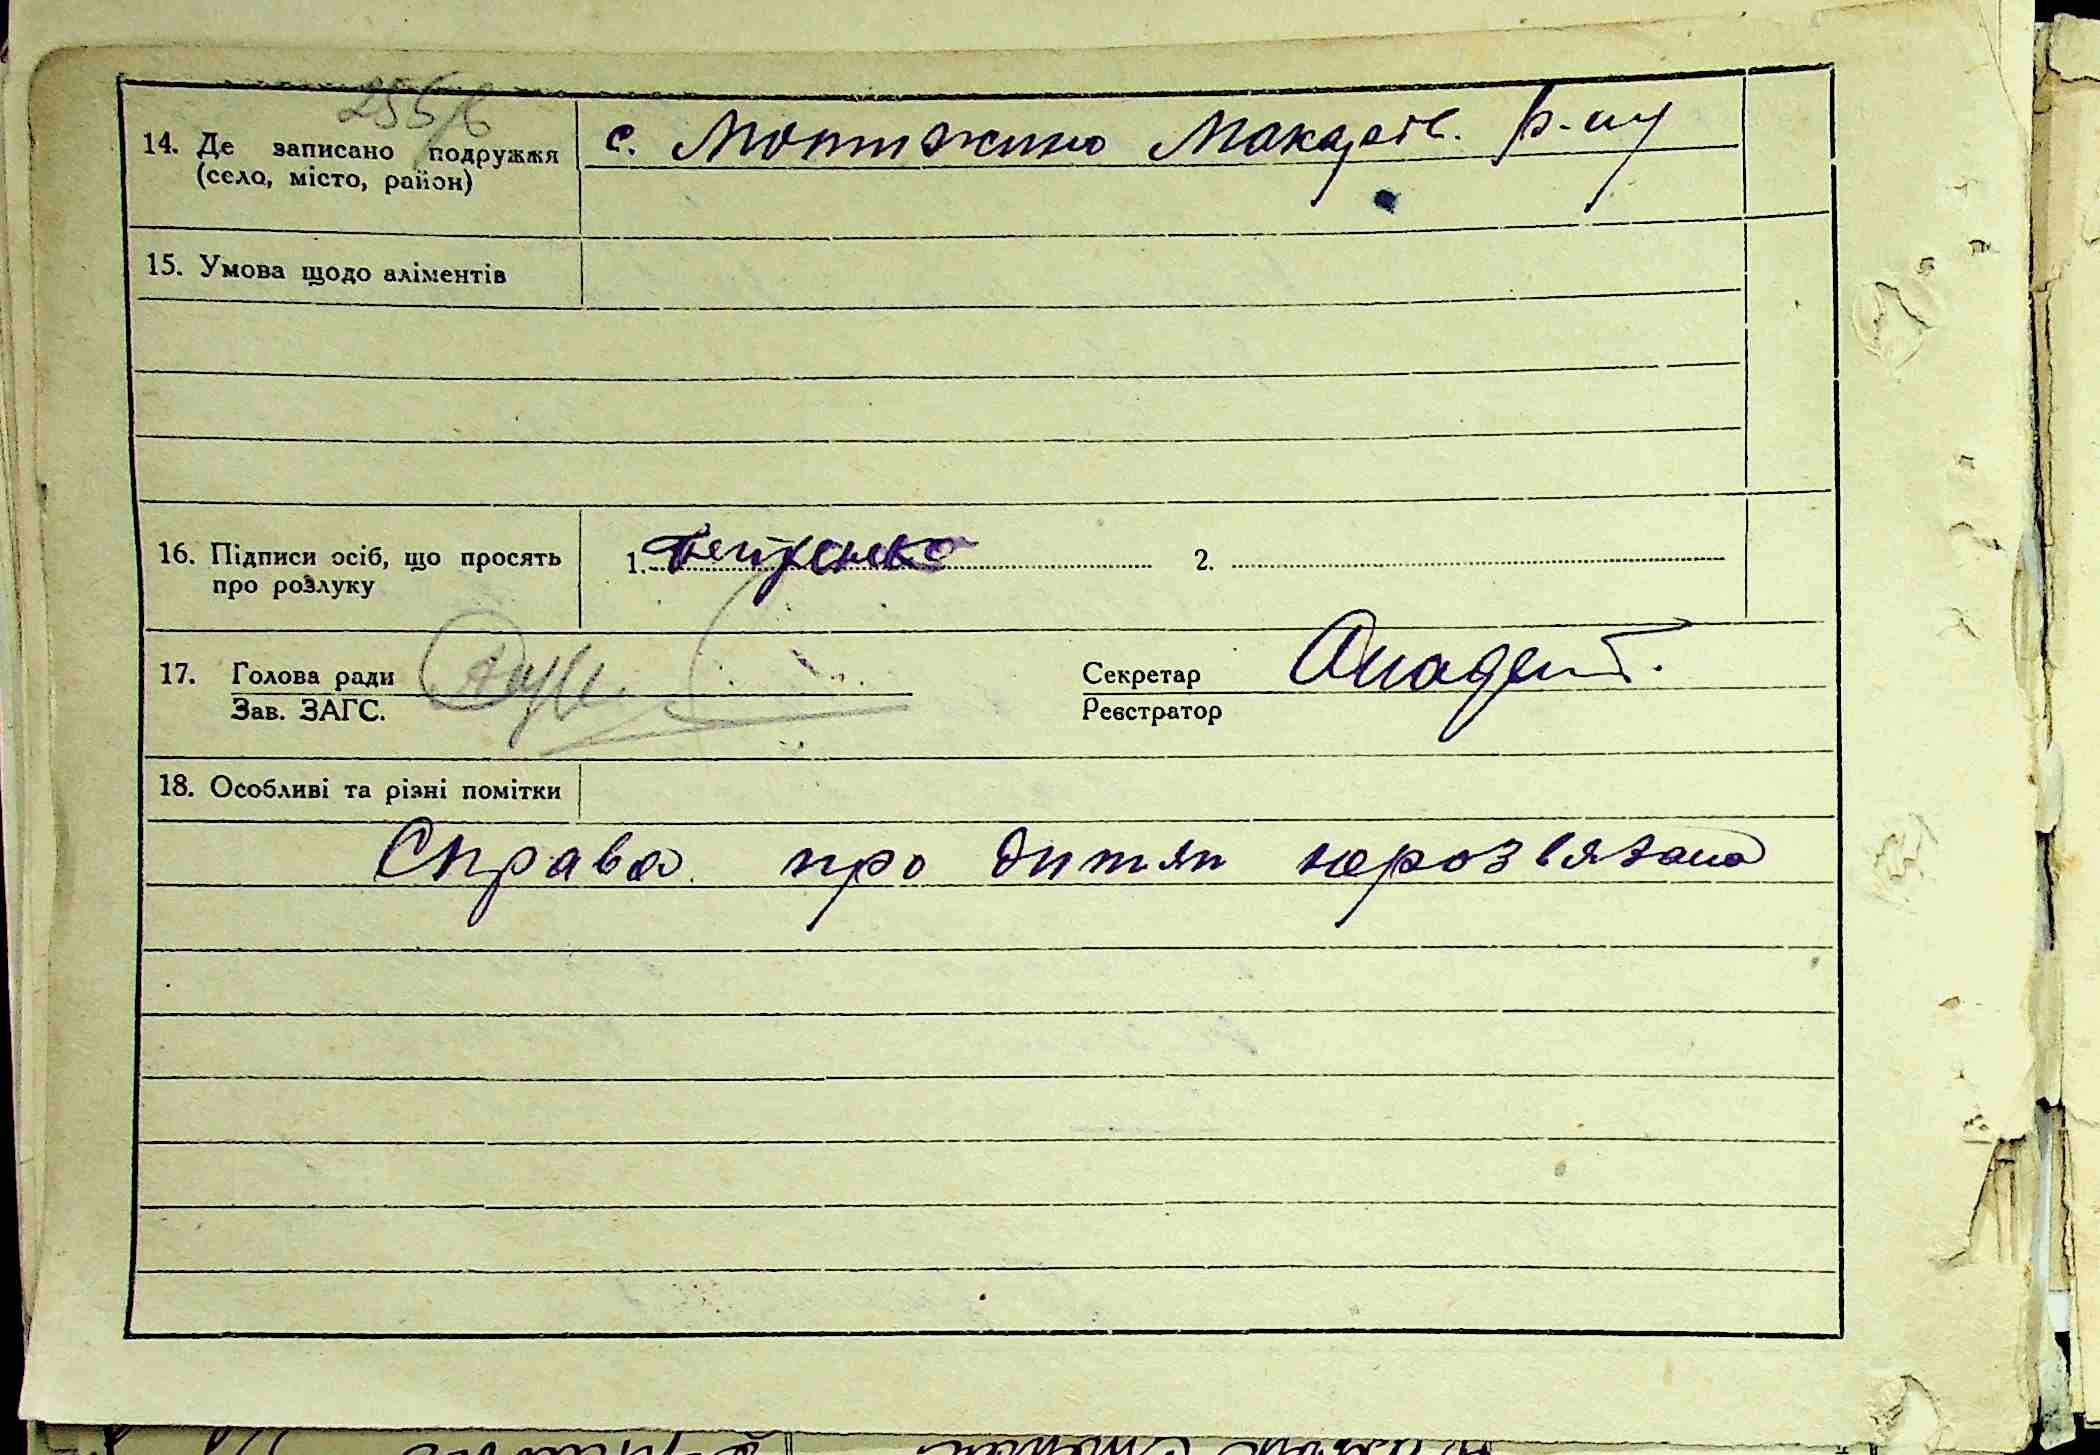 255/в
14. Де записано подружжя
(село, місто, район)
с. Мотижино Макарів. р-ну
15. Умова щодо аліментів
16. Підписи осіб, що просять
про розлуку
1. Петренко 2.
17. Голова ради
Зав. ЗАГС.
Секретар
Реєстратор
18. Особливі та різні помітки
Справа про дитян нерозвязана